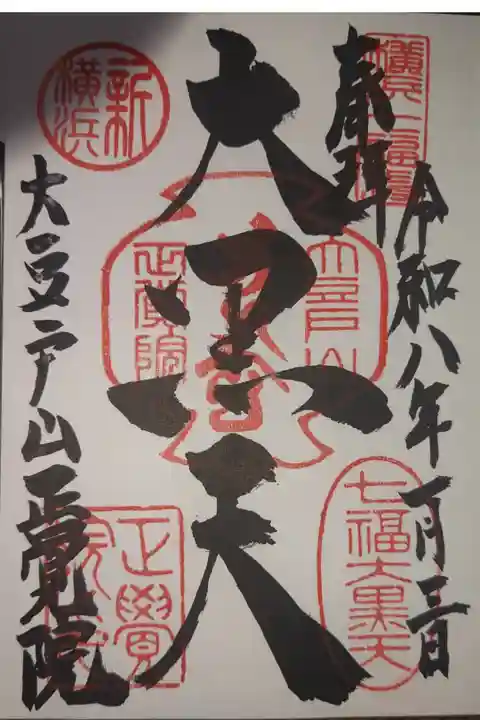 奉拝
令和八年一月三日
大黒天
大豆戸山正覚院
新横浜
七福大黒天
大豆戸山
正覚院
正覺